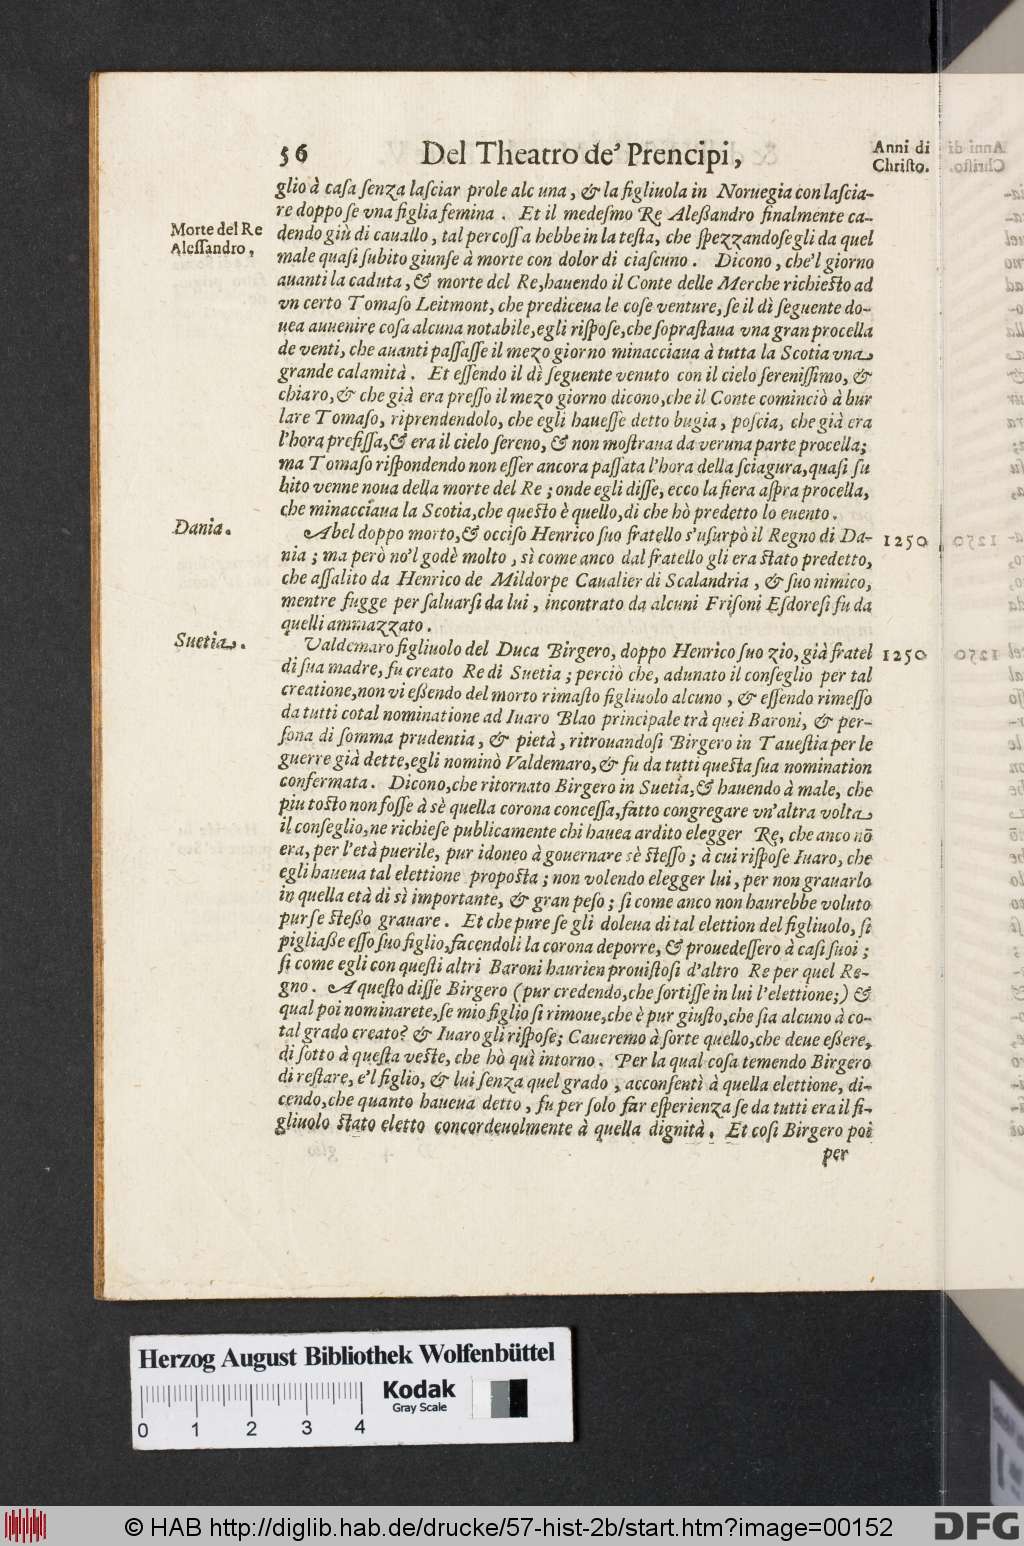 56 Del Theatro de' Prencipi, Anni di Christo.
glio à casa senza lasciar prole alc una, & la figliuola in Noruegia con lascia-
re doppo se vna figlia femina . Et il medesmo Re Aleßandro finalmente ca-
Morte del Re Alessandro,
dendo giù di cauallo, tal percossa hebbe in la testa, che spezzandosegli da quel
male quasi subito giunse à morte con dolor di ciascuno . Dicono, che'l giorno
auanti la caduta, & morte del Re, hauendo il Conte delle Merche richiesto ad
vn certo Tomaso Leitmont, che prediceua le cose venture, se il dì seguente do-
uea auuenire cosa alcuna notabile, egli rispose, che soprastaua vna gran procella
de venti, che auanti passasse il mezo giorno minacciaua à tutta la Scotia vna
grande calamità . Et essendo il dì seguente venuto con il cielo serenissimo, &
chiaro, & che già era presso il mezo giorno dicono, che il Conte cominciò à bur
lare Tomaso, riprendendolo, che egli hauesse detto bugia, poscia, che già era
l'hora prefissa, & era il cielo sereno, & non mostraua da veruna parte procella;
ma Tomaso rispondendo non esser ancora passata l'hora della sciagura, quasi su
bito venne noua della morte del Re ; onde egli disse, ecco la fiera aspra procella,
che minacciaua la Scotia, che questo è quello, di che hò predetto lo euento .
Dania.
Abel doppo morto, & occiso Henrico suo fratello s'usurpò il Regno di Da- 1250
nia ; ma però no'l godè molto , sì come anco dal fratello gli era stato predetto,
che assalito da Henrico de Mildorpe Caualier di Scalandria , & suo nimico,
mentre fugge per saluarsi da lui , incontrato da alcuni Frisoni Esdoresi fu da
quelli ammazzato .
Suetia.
Valdemaro figliuolo del Duca Birgero, doppo Henrico suo zio, già fratel 1250
di sua madre, fu creato Re di Suetia ; perciò che, adunato il conseglio per tal
creatione, non vi eßendo del morto rimasto figliuolo alcuno , & essendo rimesso
da tutti cotal nominatione ad Iuaro Blao principale trà quei Baroni, & per-
sona di somma prudentia, & pietà, ritrouandosi Birgero in Tauestia per le
guerre già dette, egli nominò Valdemaro, & fu da tutti questa sua nomination
confermata . Dicono, che ritornato Birgero in Suetia, & hauendo à male, che
piu tosto non fosse à sè quella corona concessa, fatto congregare vn'altra volta
il conseglio, ne richiese publicamente chi hauea ardito elegger Re, che anco nõ
era, per l'età puerile, pur idoneo à gouernare sè stesso ; à cui rispose Iuaro, che
egli haueua tal elettione proposta ; non volendo elegger lui, per non grauarlo
in quella età di sì importante, & gran peso ; si come anco non haurebbe voluto
pur se steßo grauare . Et che pure se gli doleua di tal election del figliuolo, si
pigliaße esso suo figlio, facendoli la corona deporre, & prouedessero à casi suoi ;
si come egli con questi altri Baroni haurien prouistosi d'altro Re per quel Re-
gno . A questo disse Birgero (pur credendo, che sortisse in lui l'elettione;) &
qual poi nominarete, se mio figlio si rimoue, che è pur giusto, che sia alcuno à co-
tal grado creato? & Iuaro gli rispose; Caueremo à sorte quello, che deue eßere,
di sotto à questa veste, che hò quì intorno . Per la qual cosa temendo Birgero
di restare, e'l figlio, & lui senza quel grado , acconsentì à quella elettione, di-
cendo, che quanto haueua detto , fu per solo far esperienza se da tutti era il fi-
gliuolo stato eletto concordeuolmente à quella dignità . Et così Birgero poi
per
Herzog August Bibliothek Wolfenbüttel
Kodak
Gray Scale
0 1 2 3 4
© HAB http://diglib.hab.de/drucke/57-hist-2b/start.htm?image=00152
DFG